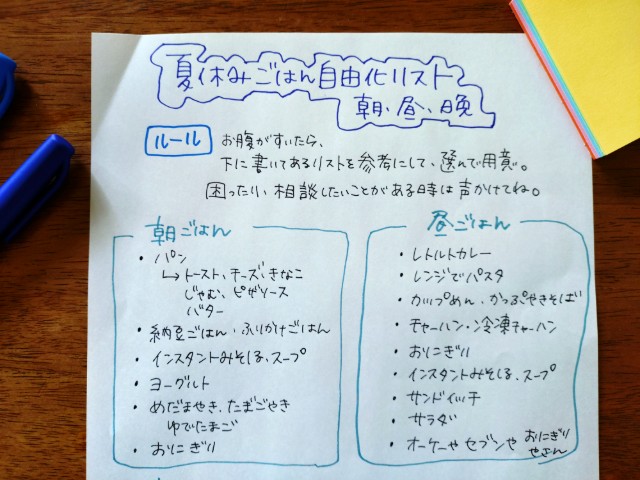 夏休みごはん自由化リスト
朝、昼、晩
ルール
お腹がすいたら、
下に書いてあるリストを参考にして、選んで用意。
困ったり、相談したいことがある時は声かけてね。
朝ごはん
・パン
↳トースト、チーズ、きなこ
じゃむ、ピザソース
バター
・納豆ごはん・ふりかけごはん
・インスタントみそしる、スープ
・ヨーグルト
・めだまやき、たまごやき
ゆでたまご
・おにぎり
昼ごはん
・レトルトカレー
・レンジでパスタ
・カップめん、かっぷやきそば
・チャーハン・冷凍チャーハン
・おにぎり
・インスタントみそしる、スープ
・サンドイッチ
・サラダ
・オーケーや セブンや おにぎり
やさん